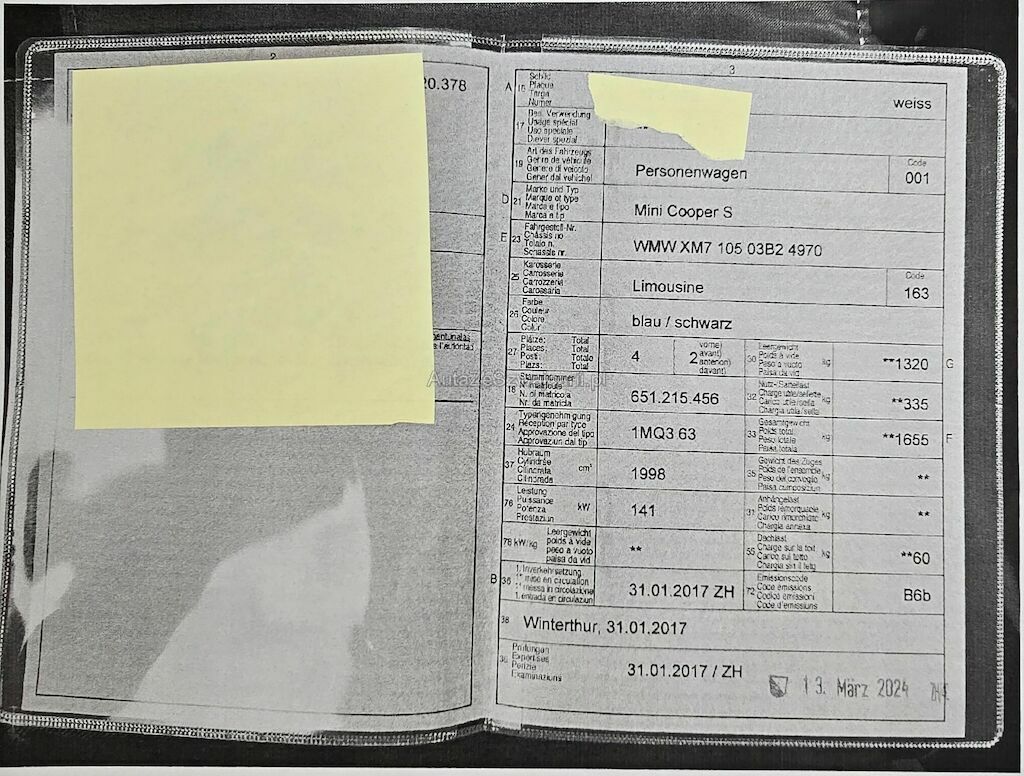 2
20.378
3
A 15 Schild
Plaque
Targa
Numer
weiss
17 Bes. Verwendung
Usage spécial
Uso speciale
Diever spezial
**
19 Art des Fahrzeugs
Genre de véhicule
Genere di veicolo
Gener dal vehichel
Personenwagen
Code
001
D 21 Marke und Typ
Marque et type
Marca e tipo
Marca e tip
Mini Cooper S
E 23 Fahrgestell-Nr.
Châssis no
Telaio n.
Schassis nr.
WMW XM7 105 03B2 4970
25 Karosserie
Carrosserie
Carrozzeria
Carossaria
Limousine
Code
163
26 Farbe
Couleur
Colore
Color
blau / schwarz
27 Plätze: Total
Places: Total
Posti: Totale
Plazs: Total
4
2 vorne)
avant)
anteriori)
davant)
30 Leergewicht
Poids à vide
Peso a vuoto
Paisa da vid
kg
**1320
G
18 Stammnummer
N° matricule
N. di matricola
Nr. da matricla
651.215.456
32 Nutz-/Sattellast
Charge utile/sellette
Carico utile/sella
Chargia utila/sella
kg
**335
24 Typengenehmigung
Réception par type
Approvazione del tipo
Approvaziun dal tip
1MQ3 63
33 Gesamtgewicht
Poids total
Peso totale
Paisa totala
kg
**1655
F
37 Hubraum
Cylindrée
Cilindrata
Cilindrada
cm³
1998
35 Gewicht des Zuges
Poids de l'ensemble
Peso del convoglio
Paisa cumposiziun
kg
**
76 Leistung
Puissance
Potenza
Prestaziun
kW
141
31 Anhängelast
Poids remorquable
Carico rimorchiato
Chargia annexa
kg
**
78 kW/kg Leergewicht
poids à vide
peso a vuoto
paisa da vid
**
55 Dachlast
Charge sur le toit
Carico sul tetto
Chargia sin il tetg
kg
**60
B 36 1. Inverkehrsetzung
1re mise en circulation
1a messa in circolazione
1. entrada en circulaziun
31.01.2017 ZH
72 Emissionscode
Code émissions
Codice emissioni
Code d'emissiuns
B6b
38 Winterthur, 31.01.2017
39 Prüfungen
Expertises
Perizie
Examinaziuns
31.01.2017 / ZH
13. März 2024
AutazeSzwajcarii.pl